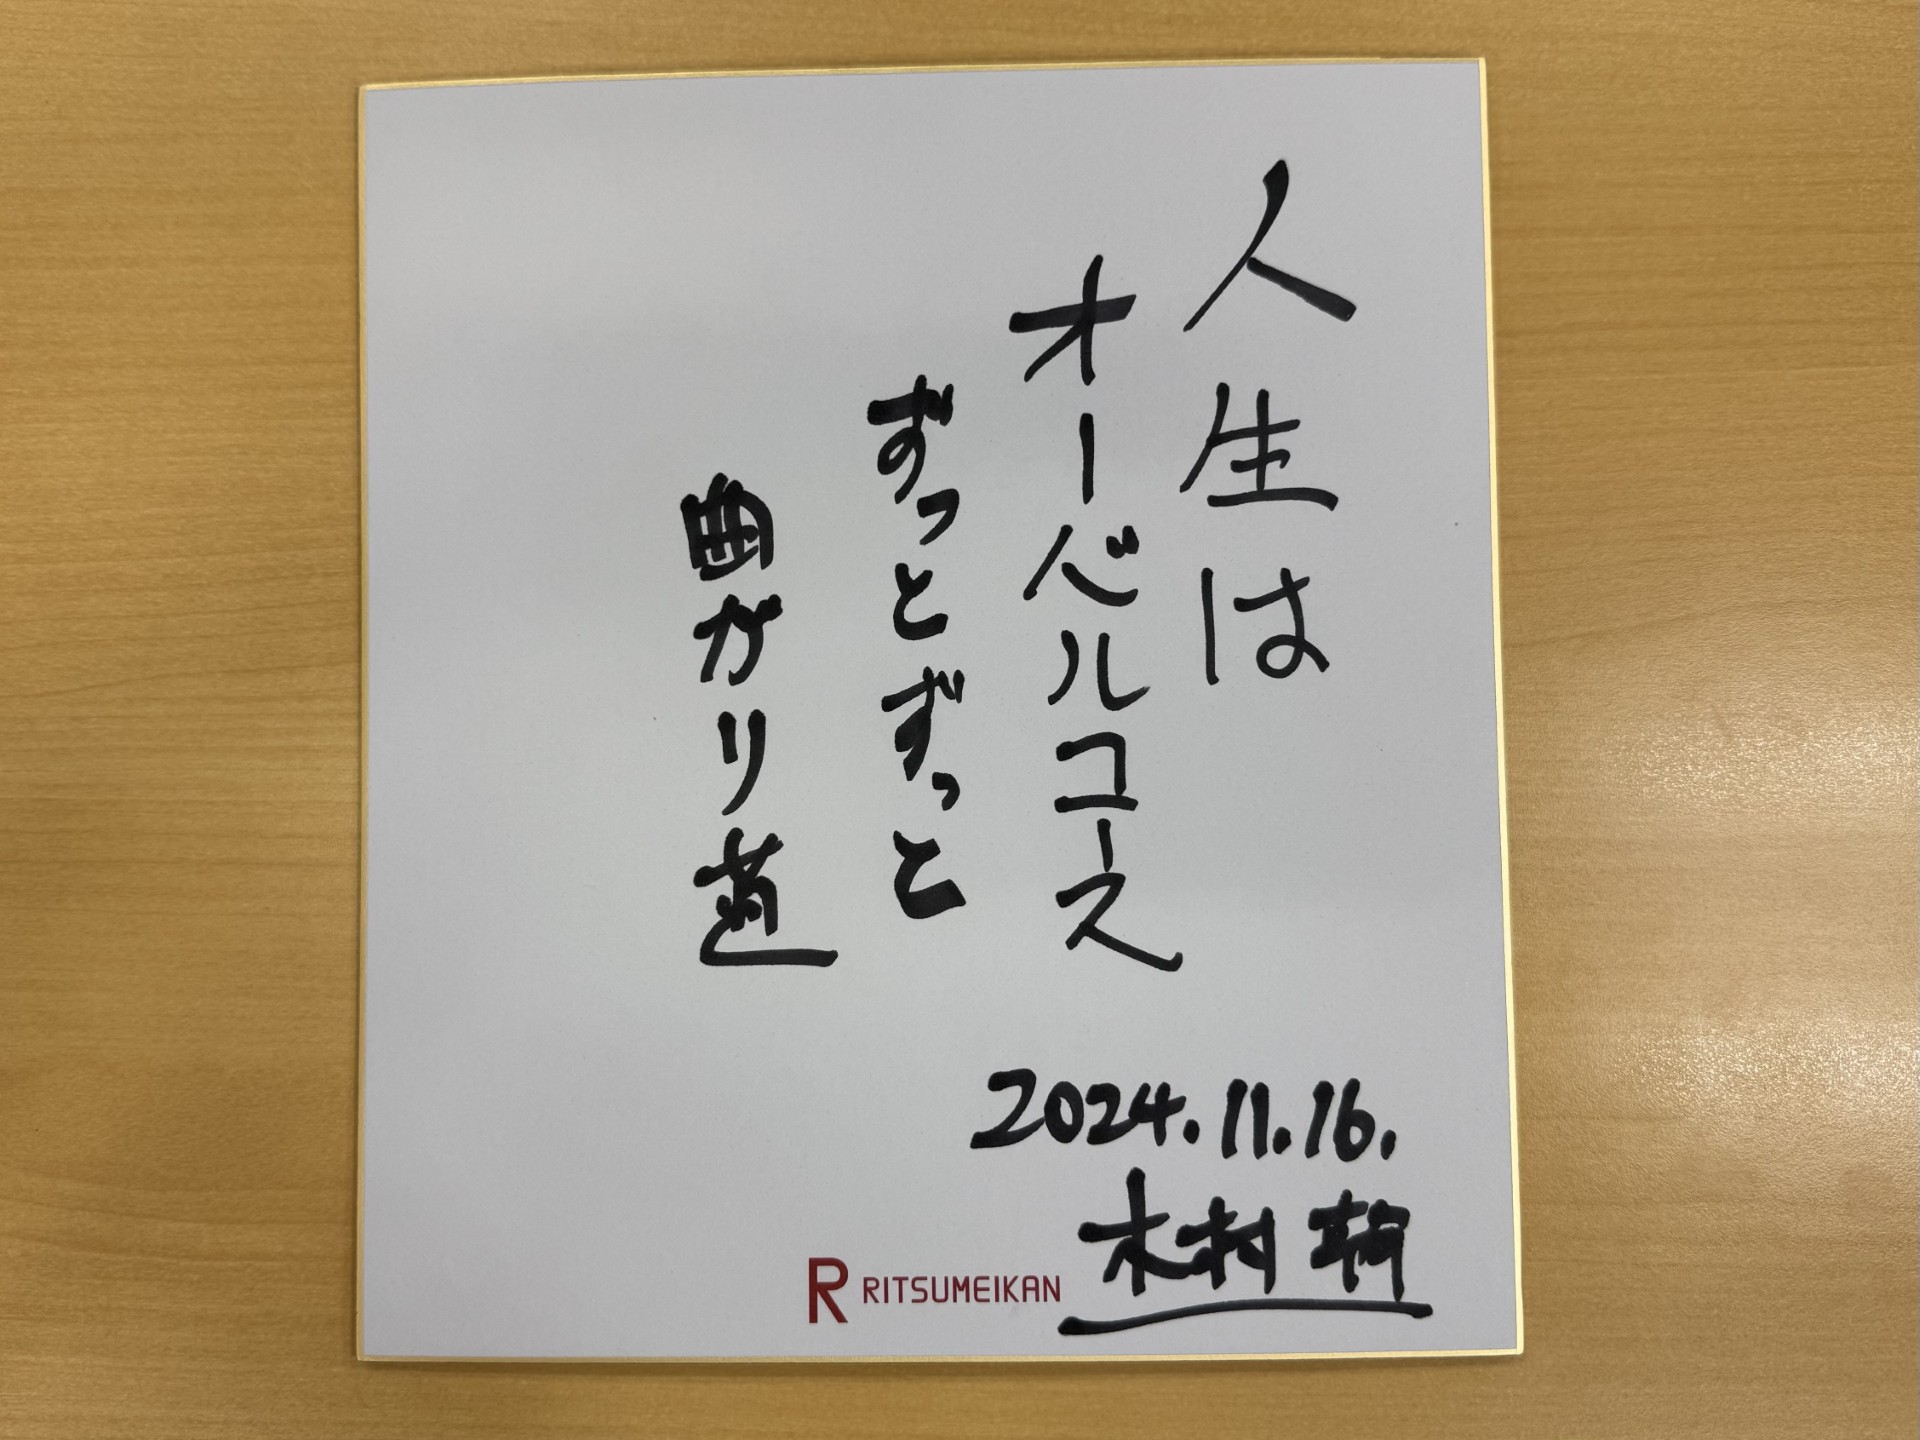 人生は
オーバルコース
ずっとずっと
曲がり道
2024.11.16.
木村
R RITSUMEIKAN